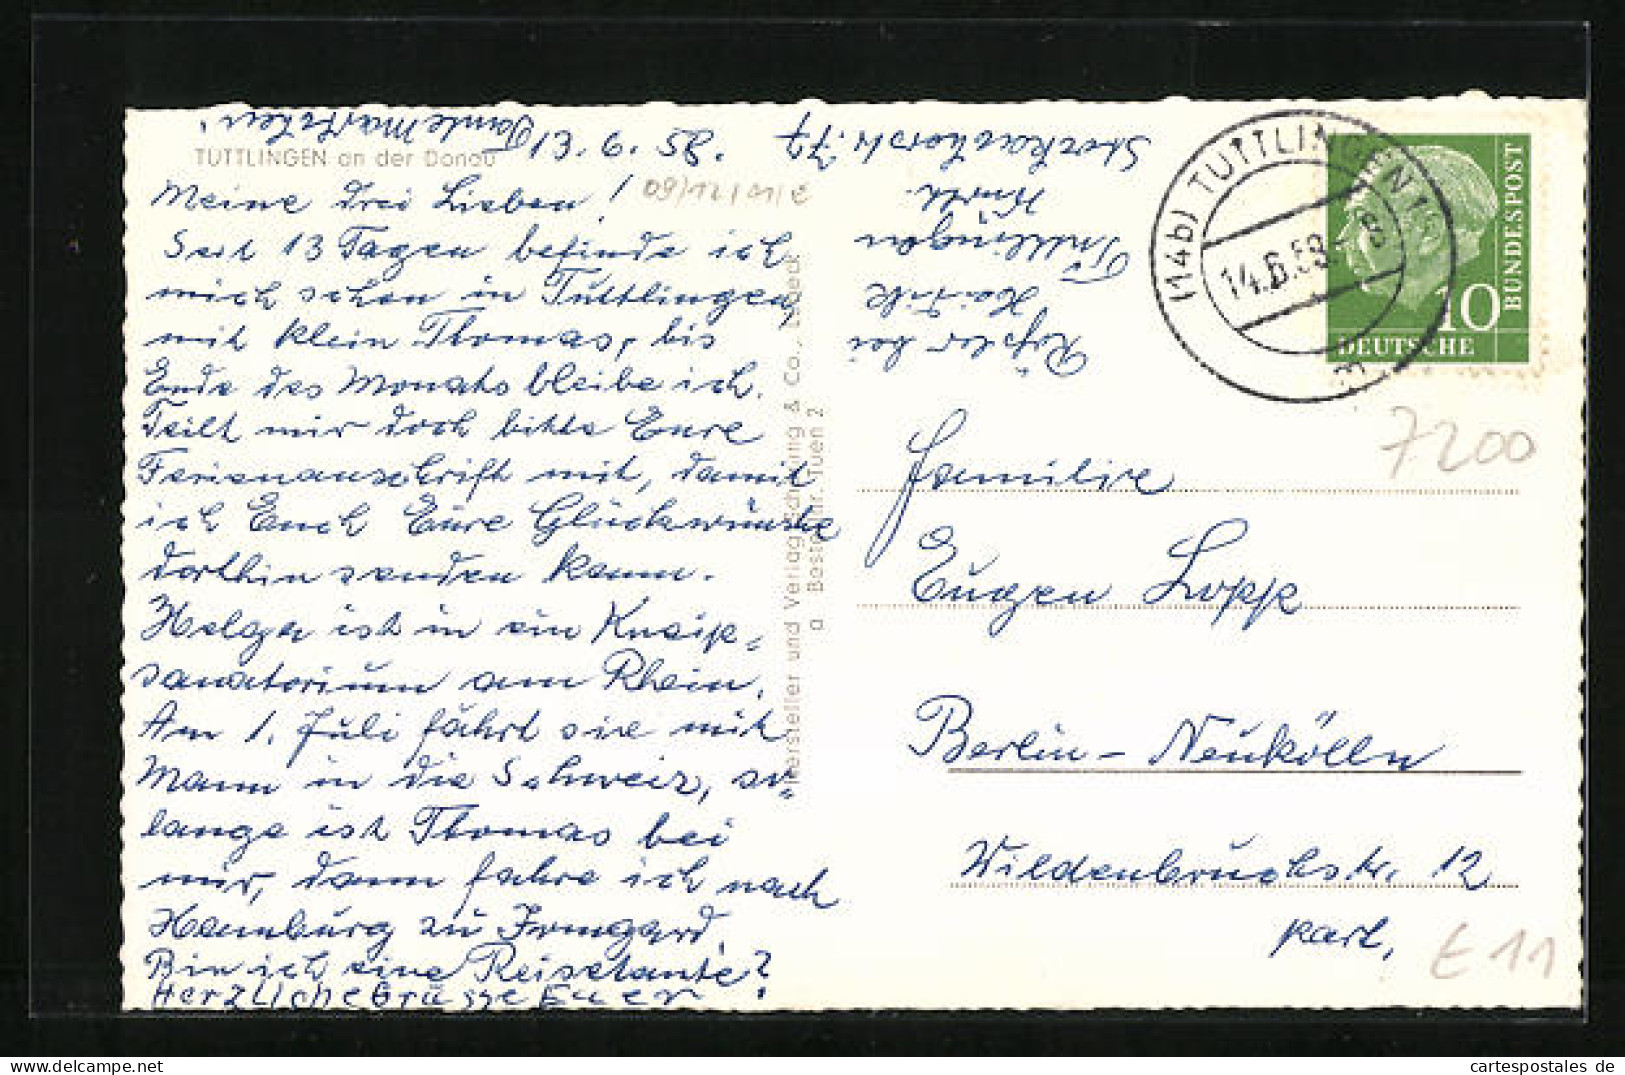 TUTTLINGEN an der Donau
09/12/01/2
Meine drei Lieben!
Seit 13 Tagen befinde ich
mich schon in Tuttlingen,
mit klein Thomas, bis
Ende des Monats bleibe ich.
Teilt mir doch bitte Eure
Ferienanschrift mit, damit
ich Euch Eure Glückwünsche
dorthin senden kann.
Helga ist in ein Kneip-
sanatorium am Rhein.
Am 1. Juli fährt sie mit
Mann in die Schweiz, so-
lange ist Thomas bei
mir, dann fahre ich nach
Hamburg zu Irmgard.
Bin ich eine Reisetante?
Herzliche Grüsse Euer
Tante
13. 6. 58.
Hersteller und Verlag Schöning & Co., Lübeck
a Bestell-Nr. Tuen 2
bei
Tuttlingen
77
(14b) TUTTLINGEN 1
14.6.58
BUNDESPOST
10
DEUTSCHE
7200
Familie
Eugen Lopp
Berlin-Neukölln
Wildenbruchstr. 12
part.
E 11
cartespostales de